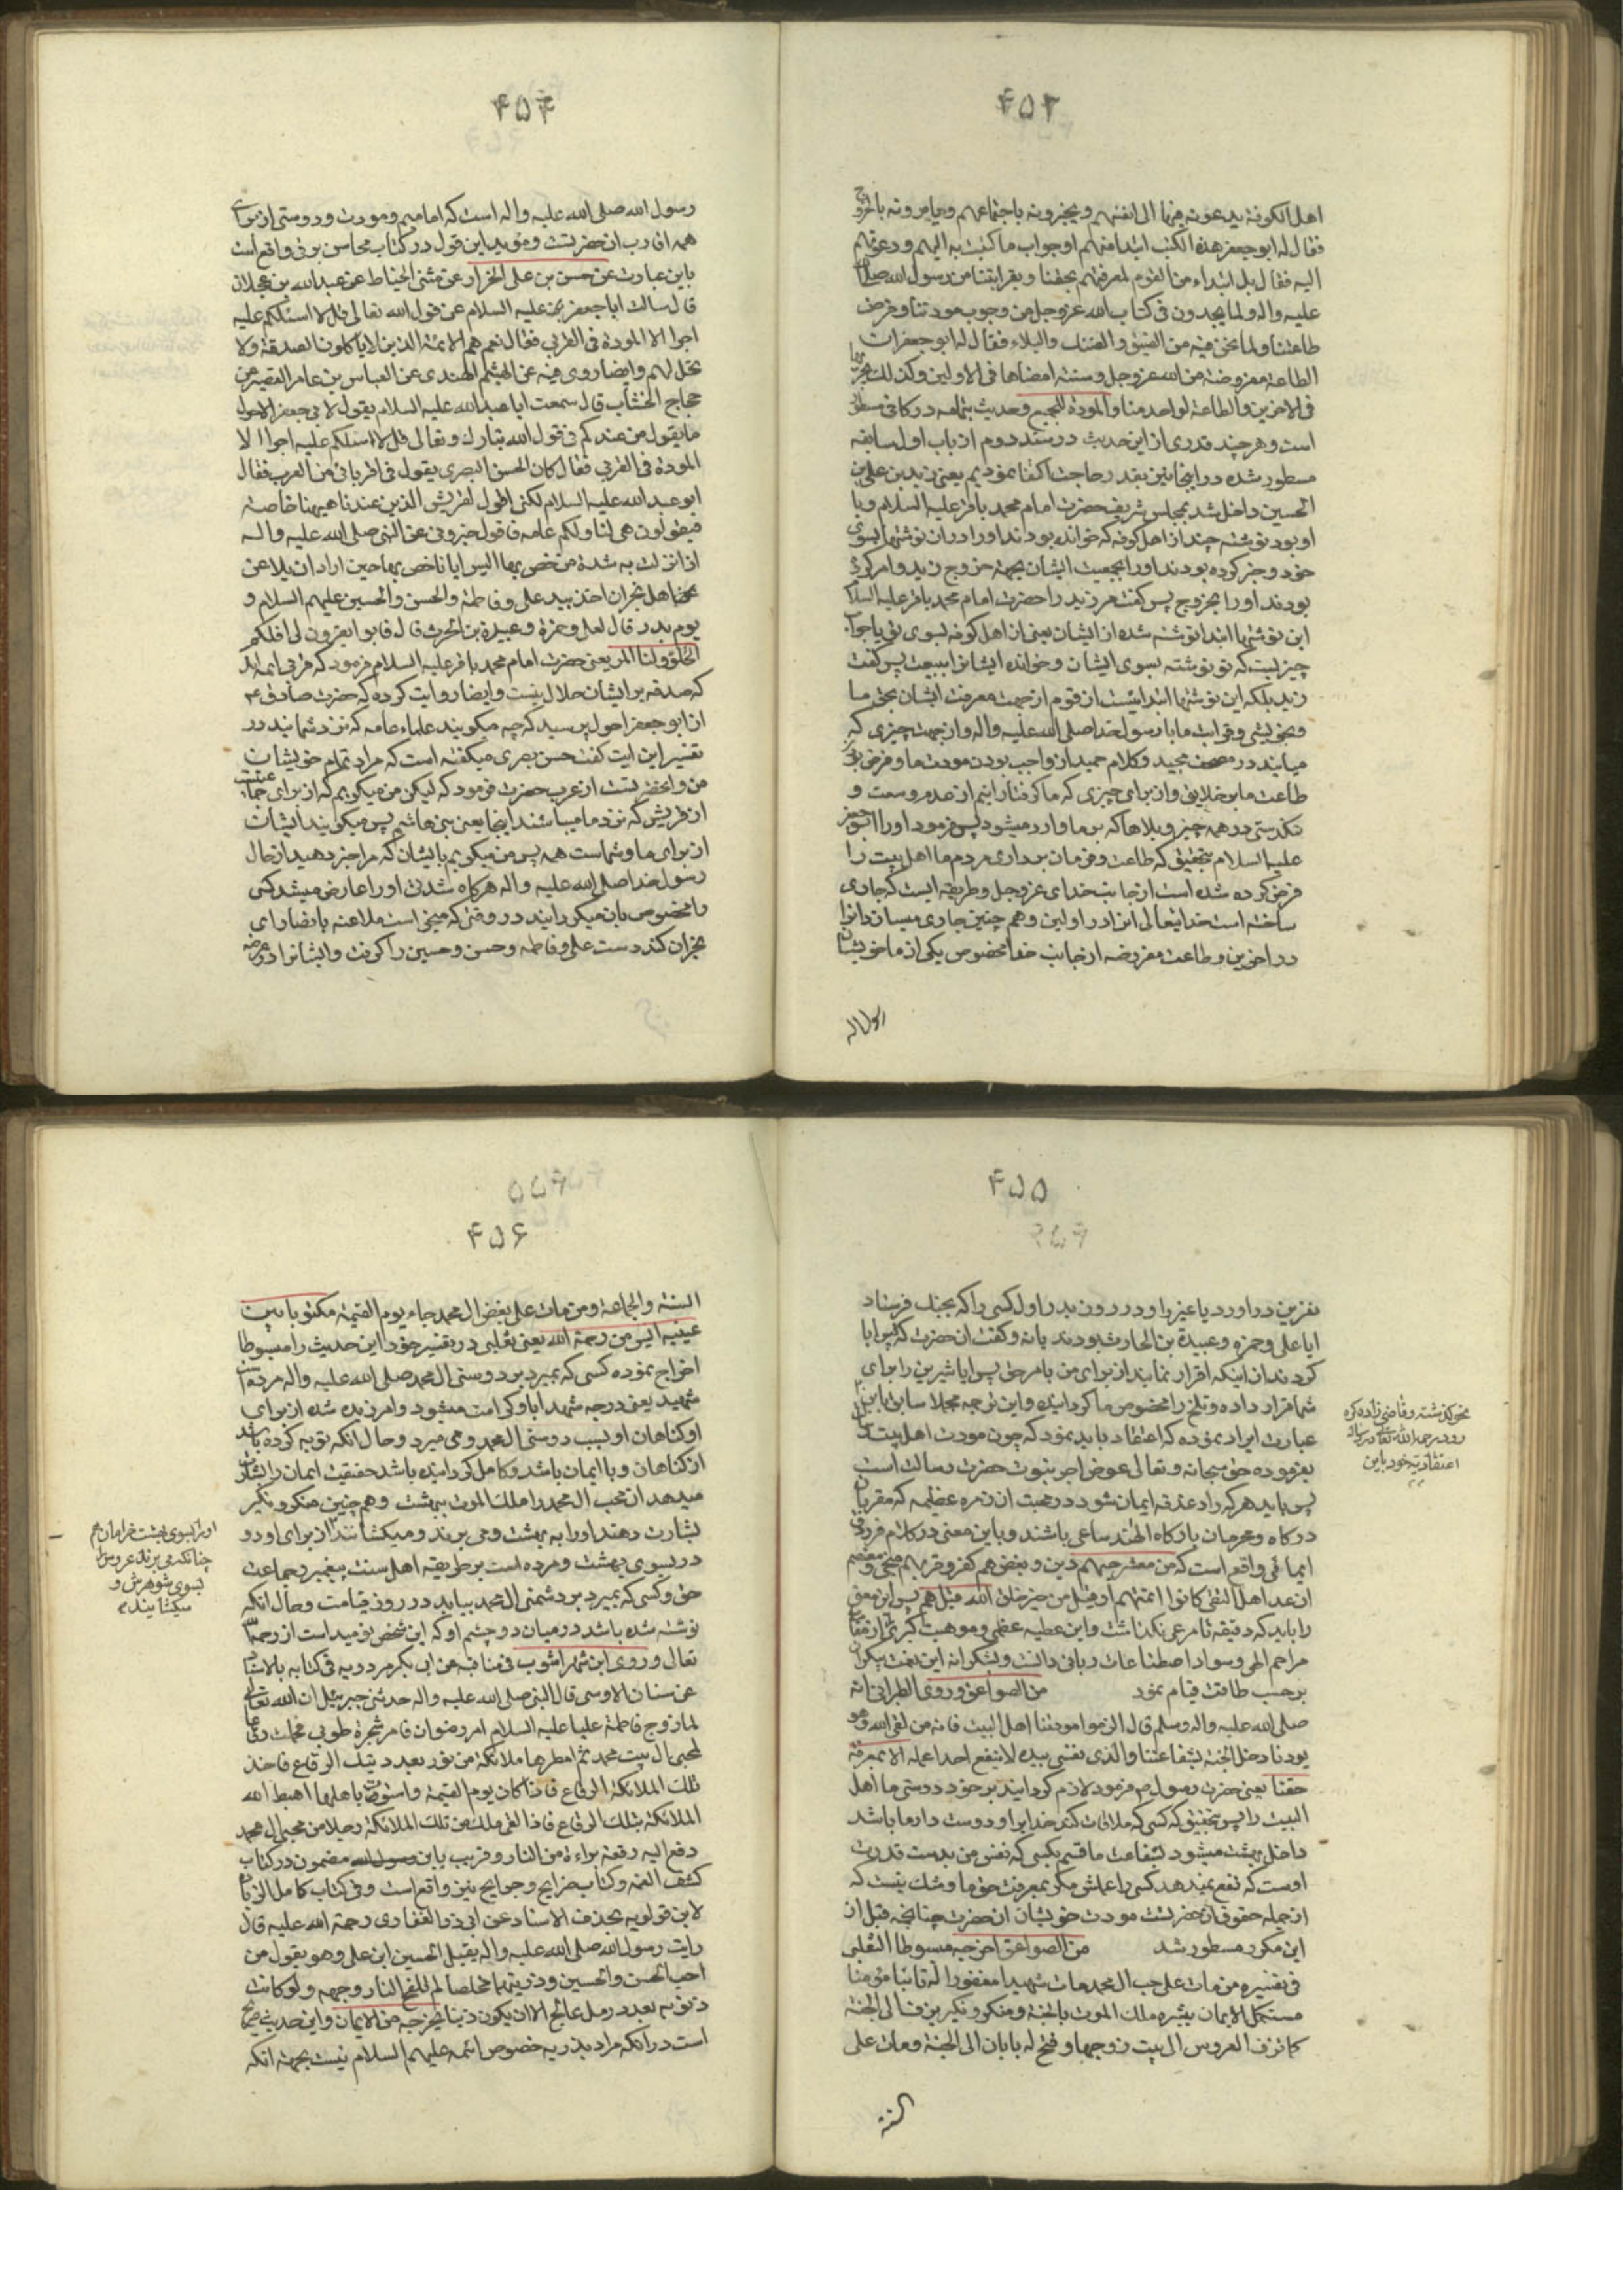 ۴۵۳
اهل الکوفة یدعونه فیها الی انفسهم و یخبرونه باجتماعهم و یامرونه بالخروج
فقال له ابو جعفر هذه الکتب ابتداء منهم او جواب ما کتبت به الیهم و دعوتهم
الیه فقال بل ابتداء من القوم لمعرفتهم بحقنا و بقرابتنا من رسول الله صلی الله
علیه و اله و لما یجدون فی کتاب الله عز و جل من وجوب مودتنا و فرض
طاعتنا و لما نحن فیه من الضیق و الضنک و البلاء فقال له ابو جعفر ان
الطاعة مفروضة من الله عز و جل و سنة امضاها فی الاولین و کذلک یجریها
فی الاخرین و الطاعة لواحد منا و المودة للجمیع و حدیث بتمامه در کافی مسطور
است و هر چند قدری از این حدیث در سند دوم از باب اول سابقه
مسطور شده در اینجا نیز بقدر حاجت اکتفا نمودیم یعنی زید بن علی بن
الحسین داخل شد بمجلس شریف حضرت امام محمد باقر علیه السلام و با
او بود نوشته چند از اهل کوفه که خوانده بودند او را در ان نوشتها بسوی
خود و خبر کرده بودند او را بجمعیت ایشان بجهة خروج زید و امر کرده
بودند او را بخروج پس گفت مر زید را حضرت امام محمد باقر علیه السلام
این نوشتها ابتدا نوشته شده از ایشان یعنی از اهل کوفه بسوی تو یا جواب
چیزیست که تو نوشته بسوی ایشان و خوانده ایشانرا ببیعت پس گفت
زید بلکه این نوشتها ابتدائیست از قوم از جهت معرفت ایشان بحق ما
و بخویشی و قرابت ما با رسول خدا صلی الله علیه و اله و از جهت چیزی که
میابند در مصحف مجید و کلام حمید از واجب بودن مودت ما و فرض بودن
طاعت ما بر خلایق و از برای چیزی که ما گرفتار اییم از عدم وسعت و
تنگدستی در همه چیز و بلاها که بر ما وارد میشود پس فرمود او را ابو جعفر
علیه السلام بتحقیق که طاعت و فرمان برداری مردم ما اهل بیت را
فرض کرده شده است از جانب خدای عز و جل و طریقه ایست که جاری
ساخته است خدایتعالی انرا در اولین و هم چنین جاری میسازد انرا
در اخرین و طاعت مفروضه از جانب خدا مخصوص یکی از ما خویشان
رسول الله
۴۵۴
رسول الله صلی الله علیه و اله است که امامیم و مودت و دوستی از برای
همه اقارب ان حضرتست و مؤید این قول در کتاب محاسن برقی واقع است
باین عبارت عن حسن بن علی الخزاز عن مثنی الحناط عن عبدالله بن عجلان
قال سالت ابا جعفر علیه السلام عن قول الله تعالی قل لا اسئلکم علیه
اجرا الا المودة فی القربی فقال نعم هم الائمة الذین لا یاکلون الصدقة و لا
تحل لهم و ایضا روی فیه عن الهیثم الهندی عن العباس بن عامر القصیر عن
حجاج الخشاب قال سمعت ابا عبدالله علیه السلام یقول لابی جعفر الاحول
ما یقول من عندکم فی قول الله تبارک و تعالی قل لا اسئلکم علیه اجرا الا
المودة فی القربی فقال کان الحسن البصری یقول فی اقربائی من العرب فقال
ابو عبد الله علیه السلام لکنی اقول لقریش الذین عندنا هیهنا خاصة
فیقولون هی لنا و لکم عامه فاقول خبرونی عن النبی صلی الله علیه و اله
اذا نزلت به شدة من خص بها الیس ایانا خص بها حین اراد ان یلاعن
اهل نجران اخذ بید علی و فاطمة و الحسن و الحسین علیهم السلام و
یوم بدر قال لعلی و حمزة و عبیدة بن الحرث قال فابوا یقرون لی افلکم
الحلو و لنا المر یعنی حضرت امام محمد باقر علیه السلام فرمود که قربی ائمه اند
که صدقه بر ایشان حلال نیست و ایضا روایت کرده که حضرت صادق ع
از ابو جعفر احول پرسید که چه میگویند علماء عامه که نزد شمایند در
تفسیر این ایت گفت حسن بصری میگفته است که مراد تمام خویشان
من و انحضرتست از عرب حضرت فرمود که لیکن من میگویم که از برای جماعتیست
از قریش که نزد ما میباشند اینجا یعنی بنی هاشم پس میگویند ایشان
از برای ما و شماست همه پس من میگویم بایشان که مرا خبر دهید از حال
رسول خدا صلی الله علیه و اله هرگاه شدتی او را عارض میشد کسی
را مخصوص بان میگردانید در وقتی که میخواست ملاعنه با نصارای
نجران کند دست علی و فاطمه و حسن و حسین را گرفت و ایشانرا در معرض
۴۵۵
نفرین در اورد یا غیر را و در روز بدر اول کسی را که بجنک فرستاد
ایا علی و حمزه و عبیدة بن الحارث بودند یا نه و گفت ان حضرت که پس ابا
کردند از اینکه اقرار نمایند از برای من بامر حق پس ایا شیرین را برای
شما قرار داده و تلخ را مخصوص ما گردانیده و این ترجمه مجملا سابق باین
عبارت ایراد نموده که اعتقاد باید نمود که چون مودت اهل بیت
بفرموده حق سبحانه و تعالی عوض اجر نبوت حضرت رسالت است
پس باید هر که را دغدغه ایمان شود در محبت ان زمره عظیمه که مقربان
درگاه و محرمان بارگاه الهند ساعی باشند و باین معنی در کلام فرزدق
ایمائی واقع است که من معشر حبهم دین و بغضهم کفر و قربهم منجی و معتصم
ان عد اهل التقی کانوا ائمتهم او قیل من خیر خلق الله قیل هم پس این معنی
را باید که دقیقه نامرعی نگذاشت و این عطیه عظمی و موهبت کبری را از
مراحم الهی و سوادر اصطناعات ربانی دانست و بشکرانه این نعمت بیکران
برحسب طاقت قیام نمود من الصواعق و روی الطبرانی انه
صلی الله علیه و اله و سلم قال الزموا مودتنا اهل البیت فانه من لقی الله و هو
یودنا دخل الجنة بشفاعتنا و الذی نفسی بیده لا ینفع احدا عمله الا بمعرفة
حقنا یعنی حضرت رسول ص فرمود لازم گردانید بر خود دوستی ما اهل
البیت را پس بتحقیق که کسی که ملاقات کند خدایرا و دوستدار ما باشد
داخل بهشت میشود بشفاعت ما قسم بکسی که نفس من بدست قدرت
اوست که نفع نمیدهد کسی را عملش مگر بمعرفت حق ما و شک نیست که
از جمله حقوق ان حضرتست مودت خویشان ان حضرت چنانچه قبل از
این مکرر مسطور شد من الصواعق اخرجه مبسوطا الثعلبی
فی تفسیره من مات علی حب ال محمد مات شهیدا مغفورا له تائبا مؤمنا
مستکمل الایمان یبشره ملک الموت بالجنة و منکر و نکیر یزف الی الجنة
کما تزف العروس الی بیت زوجها و فتح له بابان الی الجنة و مات علی
السنة
نحو گذشته و قاضی زاده کره
رودی رحمه الله تعالی در رساله
اعتقادیه خود باین
۴۵۶
السنة و الجماعة و من مات علی بغض ال محمد جاء یوم القیمة مکتوبا بین
عینیه ایس من رحمة الله یعنی ثعلبی در تفسیر خود این حدیث را مبسوطا
اخراج نموده کسی که بمیرد بر دوستی ال محمد صلی الله علیه و اله مرده است
شهید یعنی درجه شهدا باو کرامت میشود و امرزیده شده از برای
او گناهان او بسبب دوستی ال محمد و می میرد و حال انکه توبه کرده باشد
از گناهان و با ایمان باشد و کامل گردانیده باشد حقیقت ایمان را بشارت
میدهد ان محب ال محمد را ملک الموت ببهشت و هم چنین منکر و نکیر
بشارت دهند او را به بهشت و می برند و میگشانند از برای او دو
در بسوی بهشت و مرده است بر طریقه اهل سنت پیغمبر و جماعت
حق و کسی که بمیرد بر دشمنی ال محمد بیاید در روز قیامت و حال انکه
نوشته شده باشد در میان دو چشم او که این شخص نومید است از رحمت
تعالی و روی ابن شهر اشوب فی مناقبه عن ابی بکر مردویه فی کتابه بالاسناد
عن سنان الاوسی قال النبی صلی الله علیه و اله حدثنی جبرئیل ان الله تعالی
لما زوج فاطمة علیا علیه السلام امر رضوان فامر شجرة طوبی فحملت رقاعا
لمحبی ال بیت محمد ثم امطرها ملائکة من نور بعدد تلک الرقاع فاخذ
تلک الملائکة الرقاع فاذا کان یوم القیمة و استوت باهلها اهبط الله
الملائکة بتلک الرقاع فاذا لقی ملک من تلک الملائکة رجلا من محبی ال محمد
دفع الیه رقعة براءة من النار و قریب باین مضمون در کتاب
کشف الغمه و کتاب خرایج و جرایح نیز واقع است و فی کتاب کامل الزیارة
لابن قولویه بحذف الاسناد عن ابی ذر الغفاری رحمة الله علیه قال
رایت رسول الله صلی الله علیه و اله یقبل الحسین ابن علی و هو یقول من
احب الحسن و الحسین و ذریتهما مخلصا لم تلفح النار وجهه و لو کانت
ذنوبه بعدد رمل عالج الا ان یکون ذنبا یخرجه من الایمان و این حدیث صریح
است در انکه مراد بذریه خصوص ائمه علیهم السلام نیست بجهة انکه
او را بسوی بهشت خرامان هم
چنانکه می برند عروس را
بسوی شوهرش و
میگشایند